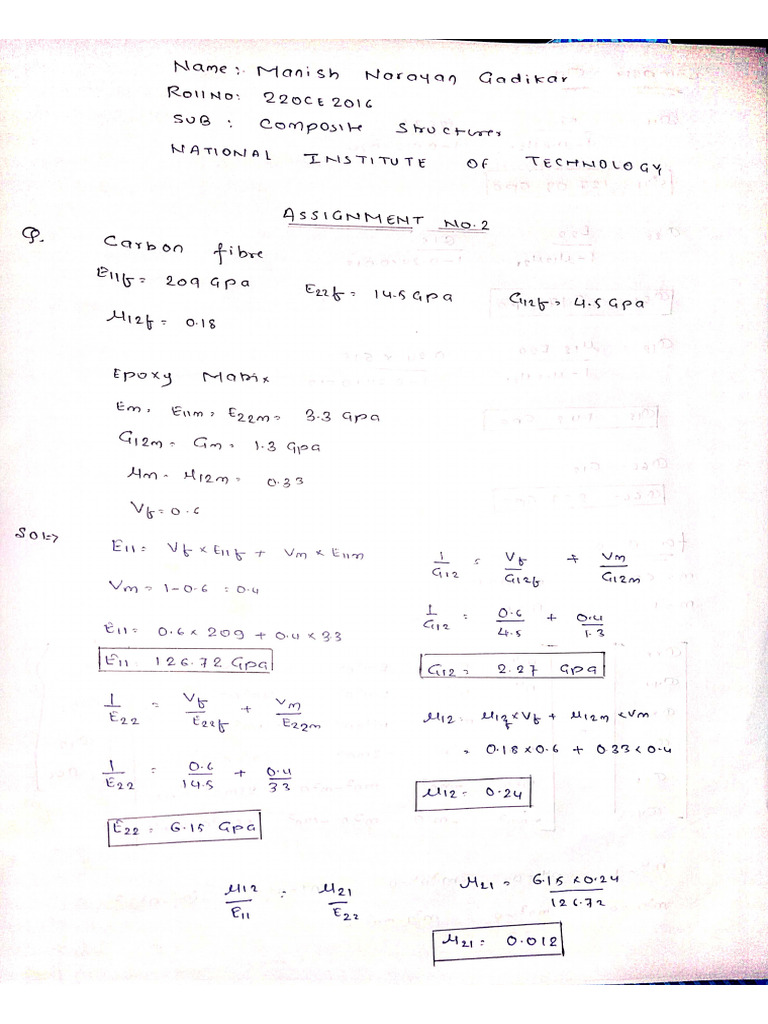 Name: Manish Narayan Gadikar
Roll No: 220CE2016
SUB : Composite Structures
NATIONAL INSTITUTE OF TECHNOLOGY
ASSIGNMENT NO.2
Q. Carbon fibre
E11f = 209 GPa E22f = 14.5 GPa G12f = 4.5 GPa
μ12f = 0.18
Epoxy Matrix
Em = E11m = E22m = 3.3 GPa
G12m = Gm = 1.3 GPa
μm = μ12m = 0.33
Vf = 0.6
Sol:→ E11 = Vf × E11f + Vm × E11m
Vm = 1-0.6 = 0.4
E11 = 0.6 × 209 + 0.4 × 33
E11 126.72 GPa
1/E22 = Vf/E22f + Vm/E22m
1/E22 = 0.6/14.5 + 0.4/33
E22 = 6.15 GPa
1/G12 = Vf/G12f + Vm/G12m
1/G12 = 0.6/4.5 + 0.4/1.3
G12 = 2.27 GPa
μ12 = μ12f × Vf + μ12m × Vm
= 0.18 × 0.6 + 0.33 × 0.4
μ12 = 0.24
μ12/E11 = μ21/E22
μ21 = 6.15 × 0.24/126.72
μ21 = 0.012